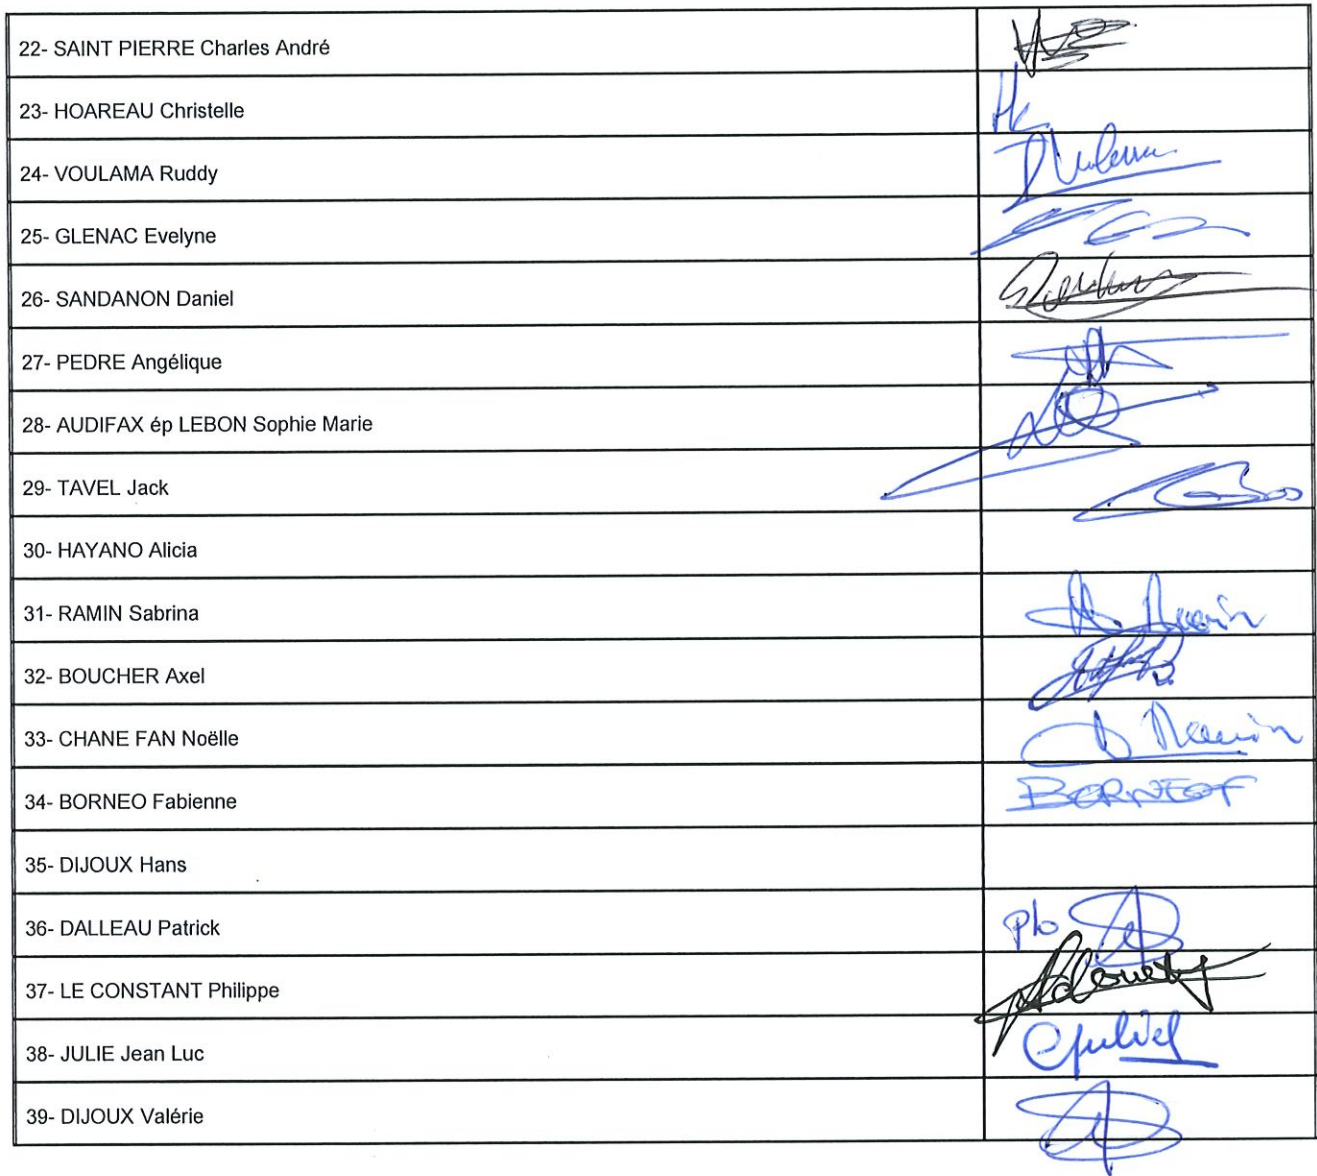 22- SAINT PIERRE Charles André
23- HOAREAU Christelle
Hc
24- VOULAMA Ruddy
25- GLENAC Evelyne
26- SANDANON Daniel
27- PEDRE Angélique
28- AUDIFAX ép LEBON Sophie Marie
29- TAVEL Jack
30- HAYANO Alicia
31- RAMIN Sabrina
32- BOUCHER Axel
33- CHANE FAN Noëlle
34- BORNEO Fabienne
35- DIJOUX Hans
36- DALLEAU Patrick
p/o
37- LE CONSTANT Philippe
38- JULIE Jean Luc
39- DIJOUX Valérie